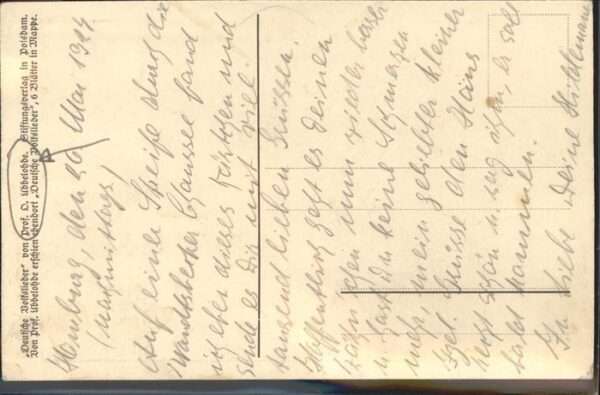 „Deutsche Volkslieder" von Prof. O. Ubbelohde, Stiftungsverlag in Potsdam.
Von Prof. Ubbelohde erschien ebendort „Deutsche Volkslieder", 6 Blätter in Mappe.
Hamburg, den 26. Mai 1914
Nachmittags,
Auf einer Streife durch die
Wandsbecker Chaussee fand
ich eben dieses Kärtchen und
sende es Dir mit viel
tausend lieben Grüssen.
Hoffentlich geht es Deinen
Zähnen nun wieder besser
u. hast Du keine Schmerzen
mehr, mein geliebter kleiner
Igel. Grüsse den Hans
recht schön u. sag ihm, er soll
bald kommen.
In Liebe Deine